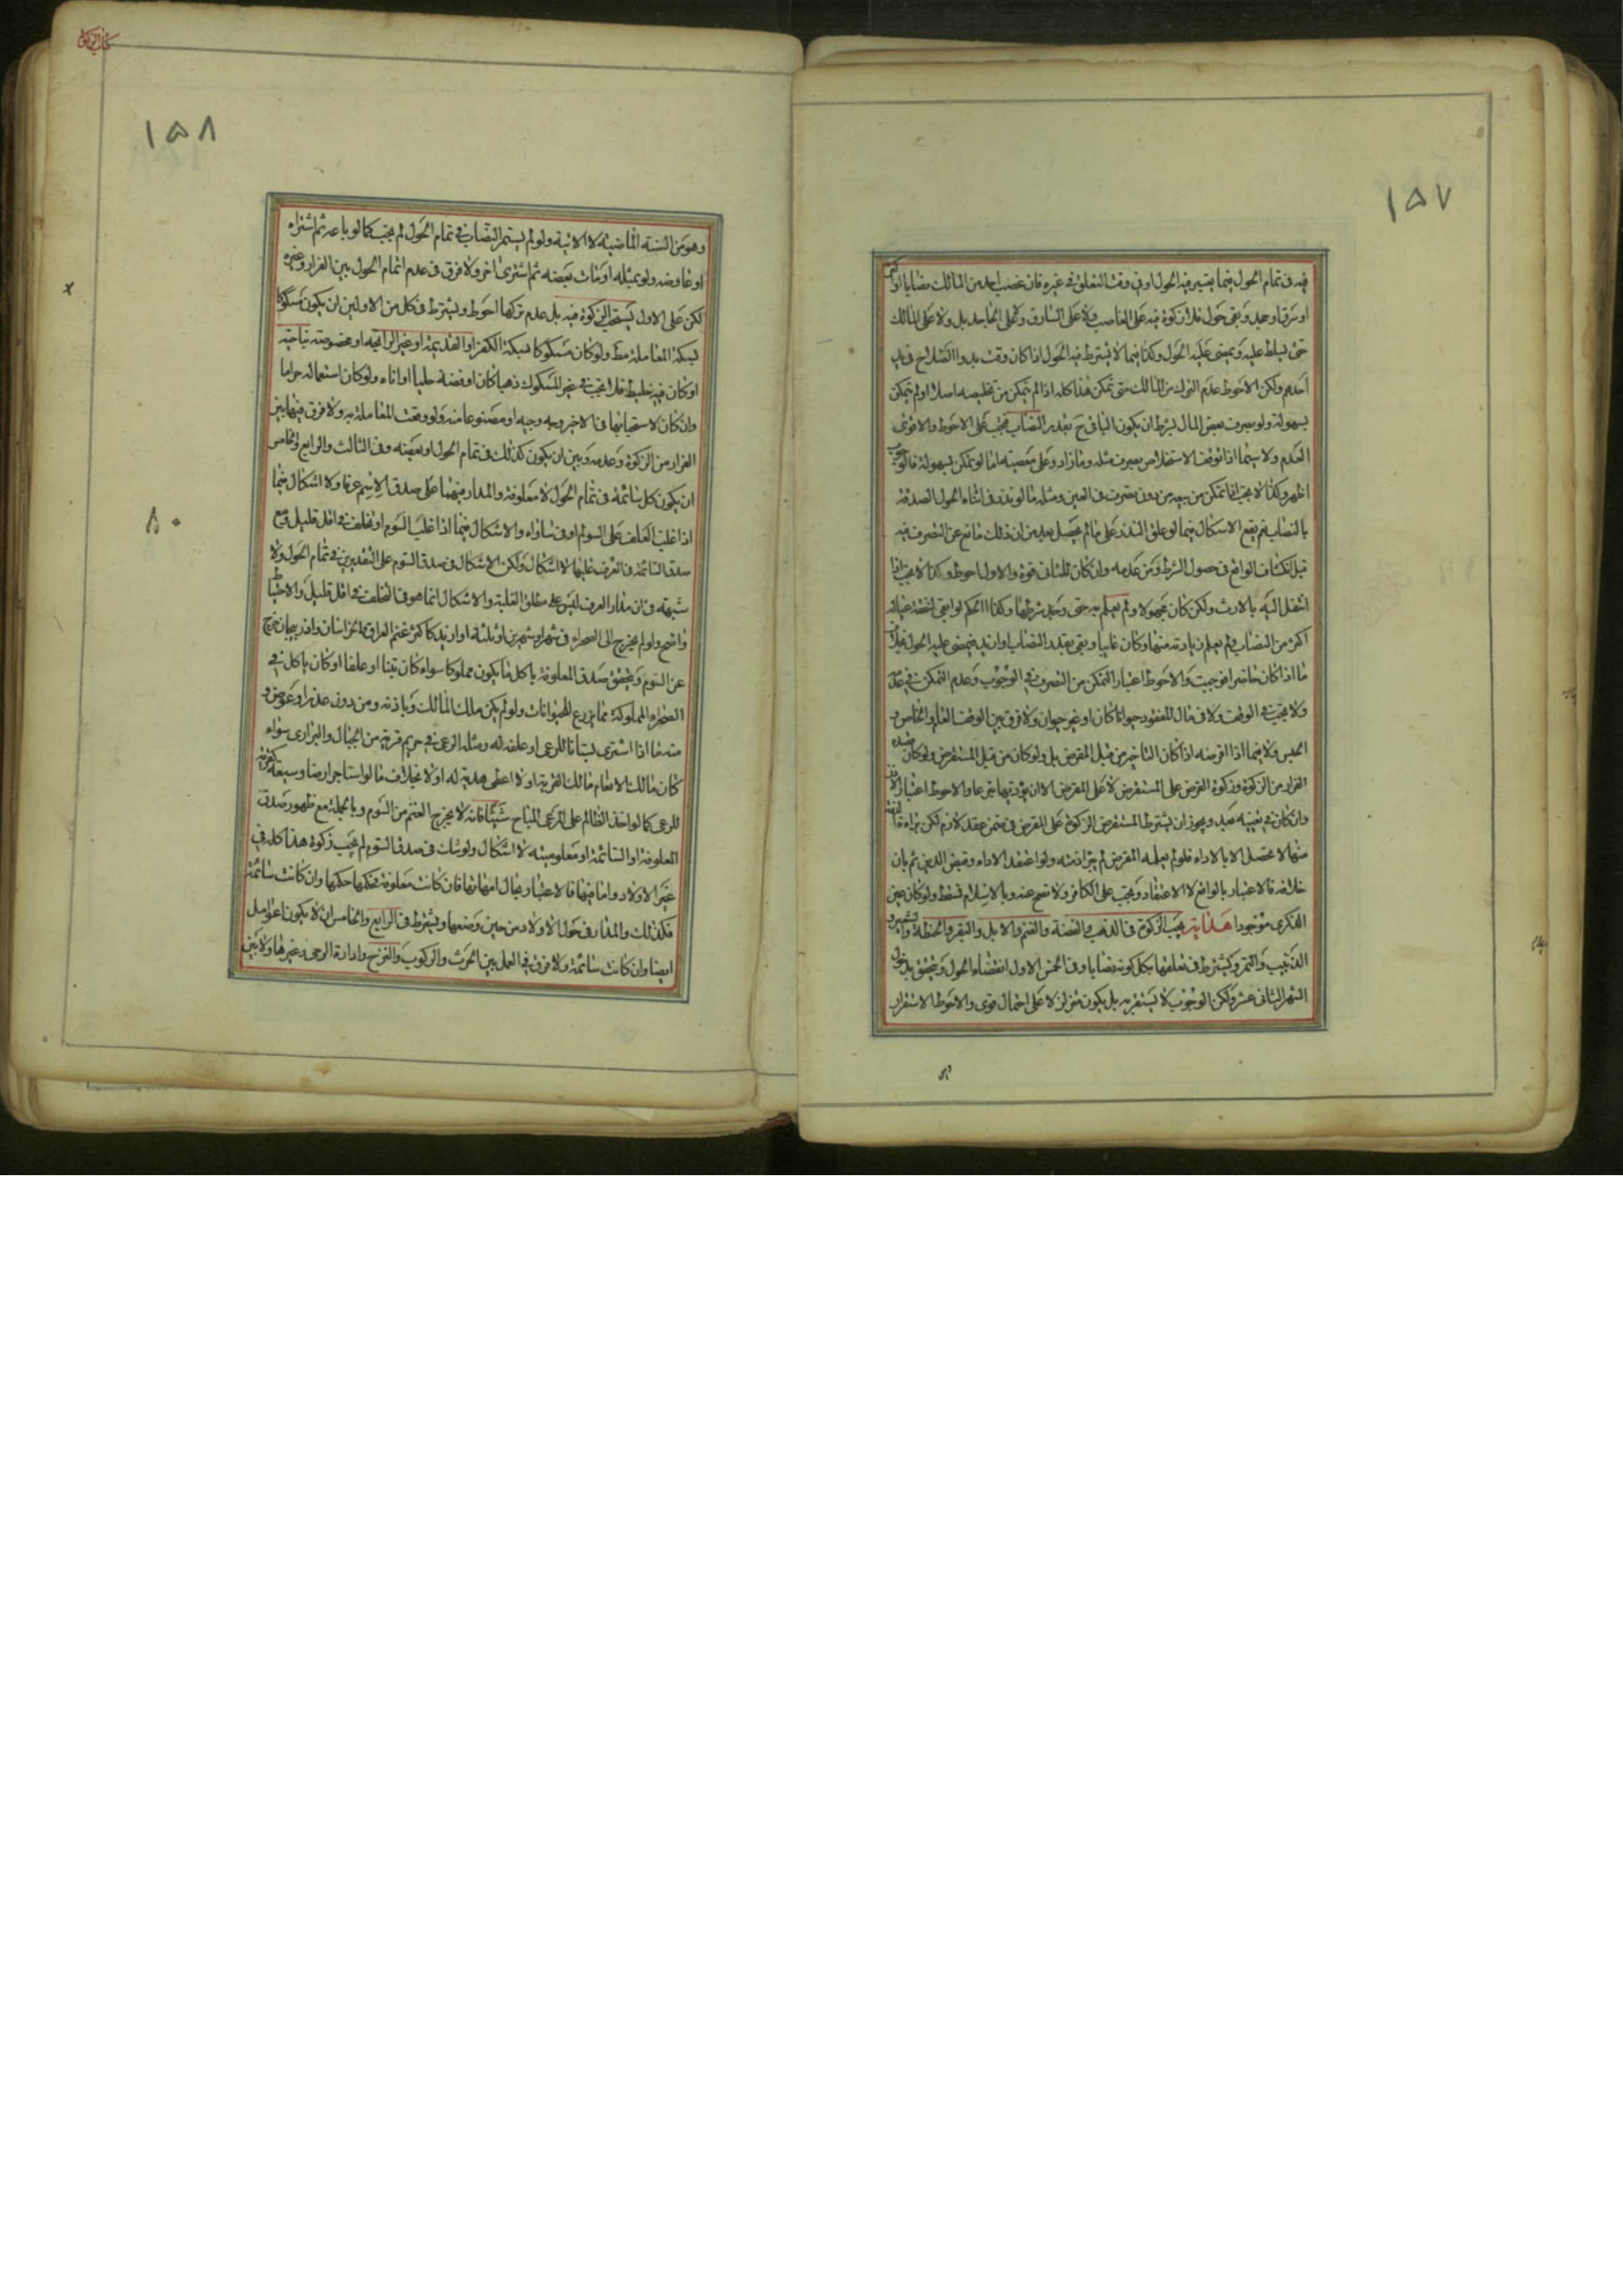 ١٥٧
فيه في تمام الحول فيما يعتبر فيه الحول او في وقت التعلق في غيره فان غصب احد من المالك نصابا او
او سرق او جحد وبقي حول فلا زكوة فيه على الغاصب ولا على السارق ولا على الجاحد بل ولا على المالك
حتى يسلط عليه ويمضي عليه الحول وكذا فيما لا يشترط فيه الحول اذا كان وقت بدو الصلاح في يد
احدهم ولكن الاحوط عدم الترك من المالك متى تمكن هذا كله اذا لم يتمكن من تخليصه اصلا او لم يتمكن
بسهولة ولو بصرف بعض المال بشرط ان يكون الباقي ح بقدر النصاب فيجب على الاحوط والاقوى
العدم ولا سيما اذا توقف الاستخلاص بصرف مثله وما زاد وعلى بعضه اما لو تمكن بسهولة فالوجوب
اظهر وكذا لا يجب اذا تمكن من بيعه من دون تصرف في العين ومثله ما لو نذر في اثناء الحول الصدقة
بالنصاب نعم يقع الاشكال فيما لو علق النذر على ما لم يحصل بعد من ان ذلك مانع عن التصرف فيه
قبل انكشاف الواقع في حصول الشرط ومن عدمه وان كان للثاني قوة والاول احوط وكذا لا يجب اذا
انتقل اليه بالارث ولكن كان مجهولا ولم يعلم به حتى وجد شرطها وكذا الحكم لو ابقى لنفقة عياله
اكثر من النصاب ولم يعلم زيادته منها وكان غايبا وبقي بقدر النصاب او ازيد فيمضي عليه الحول بخلاف
ما اذا كان حاضرا فوجبت والاحوط اعتبار التمكن من التصرف في الوجوب وعدم التمكن في عدمه
ولا يجب في الوقف ولا في مال المفقود حيوانا كان او غير حيوان ولا فرق بين الوقف العام والخاص و
الحبس ولا فيما اذا اقرضه اذا كان التاخير من قبل المقرض بل ولو كان من قبل المستقرض ولو كان قصده
الفرار من الزكوة وزكوة القرض على المستقرض لا على المقرض الا ان يؤديها تبرعا والاحوط اعتبار الاذن
وان كان في تعيينه بعيد ويجوز ان يشترط المستقرض الزكوة على المقرض في ضمن عقد لازم لكن براءة ذمته
منها لا تحصل الا بالاداء فلو لم يعلمه المقرض لم يبرأ ذمته ولو اعتقد الاداء وقبض الدين ثم بان
خلافه فالاعتبار بالواقع لا الاعتقاد وتجب على الكافر ولا تصح عنه وبالاسلام تسقط ولو كان عين
الذكرى موجودا هداية يجب الزكوة في الذهب والفضة والغنم والابل والبقر والحنطة والشعير و
الزبيب والتمر ويشترط في تعلقها بكل كونه نصابا وفي الخمس الاول انقضاء الحول ويتحقق بدخول
الشهر الثاني عشر ولكن الوجوب لا يستقر به بل يكون متزلزلا على احتمال قوي والاحوط الاستقرار
كتاب الزكوة
١٥٨
وهو من السنة الماضية لا الاتية ولو لم يستمر النصاب في تمام الحول لم يجب كما لو باعه ثم اشتراه
او عاوضه ولو بمثله او مات بعضه ثم اشترى اخر ولا فرق في عدم اتمام الحول بين الفرار وغيره
لكن على الاول يستحب الزكوة فيه بل عدم تركها احوط ويشترط في كل من الاولين ان يكون مسكوكا
بسكة المعاملة مط ولو كان مسكوكا بسكة الكفر او القديمة او غير الرائجة او مخصوصة بناحية
او كان فيه خليط فلا تجب في غير المسكوك ذهبا كان او فضة حليا او اناء ولو كان استعماله حراما
وان كان لاستحبابها في الاخير وجه وجيه او مصنوعا منه ولو وقعت المعاملة به ولا فرق فيها بين
الفرار من الزكوة وعدمه وبين ان يكون كذلك في تمام الحول او بعضه وفي الثالث والرابع والخامس
ان يكون كل سائمة في تمام الحول لا معلوفة والمدار فيهما على صدق الاسم عرفا ولا اشكال فيما
اذا غلب العلف على السوم او في تساواه والاشكال فيما اذا غلب السوم او تخلف في اقل قليل ومع
صدق السائمة في العرف عليها لا اشكال ولكن الاشكال في صدق السوم على التقديرين في تمام الحول ولا
شبهة في ان مدار العرف ليس على مطلق الغلبة والاشكال انما هو في التخلف في اقل قليل والاحتياط
واضح ولو لم يخرج الى الصحراء في شهر او شهرين او ثلثة او ازيد كاكثر غنم العراق والخراسان واذربيجان خرج
عن السوم ويتحقق صدق المعلوفة باكل ما يكون مملوكا سواء كان تبنا او علفا او كان باكل في
الصحراء المملوكة مما يزرع للحيوانات ولو لم يكن ملك المالك وباذنه ومن دون عذر او عوض و
منه ما اذا اشترى بستانا للرعي او علفه له ومثله الرعي في حريم قرية من الجبال والبراري سواء
كان مالك الانعام مالك القرية او لا اعطى هدية له او لا بخلاف ما لو استاجر ارضا وسيعة كقرية
للرعي كما لو اخذ الظالم على المرعى المباح شيئا فانه لا يخرج الغنم من السوم وبالجملة مع ظهور صدق
المعلوفة او السائمة او معلوميته لا اشكال ولو شك في صدق السوم لم يجب زكوة هذا كله في
غير الاولاد واما فيها فالاعتبار بحال امهاتها فان كانت معلوفة فحكمها حكمها وان كانت سائمة
فكذلك والمدار في حول الاولاد من حين وضعها ويشترط في الرابع والخامس ان لا يكون اعوامل
ايضا وان كانت سائمة ولا فرق في العمل بين الحرث والركوب والنزح وادارة الرحى وغيرها ولا بين